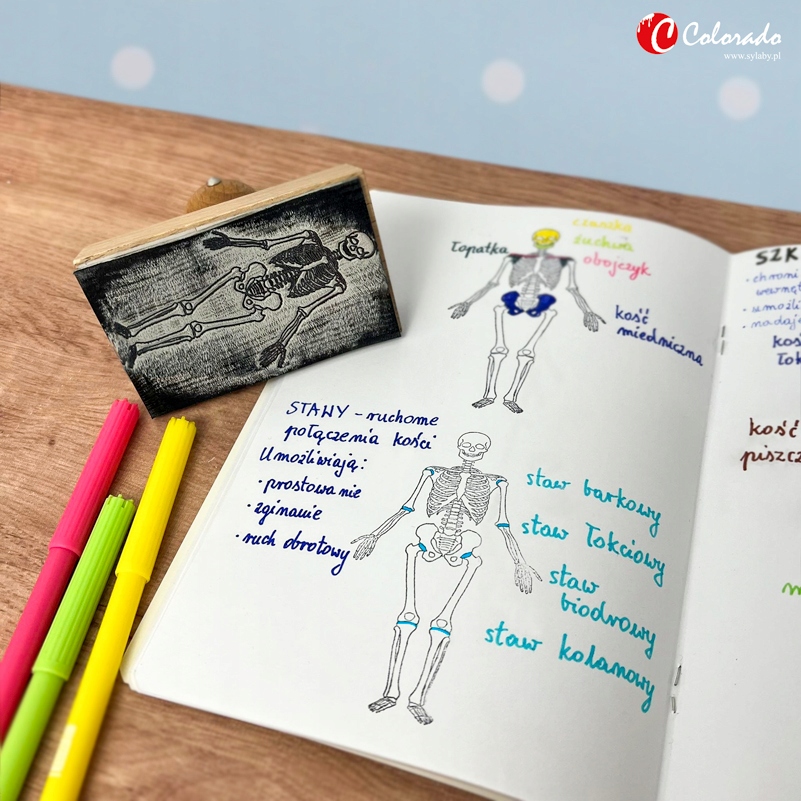 Colorado
www.sylaby.pl
czaszka
żuchwa
obojczyk
Łopatka
kość
miedniczna
STAWY - ruchome
połączenia kości
Umożliwiają:
• prostowanie
• zginanie
• ruch obrotowy
staw barkowy
staw łokciowy
staw
biodrowy
staw kolanowy
SZK
• chroni
wewnęt
• umożli
• nadaj
kość
piszcz